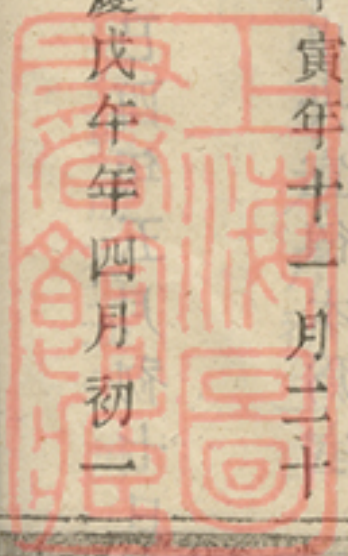 寅年十一月二十
戊午年四月初一
上海圖
書館藏